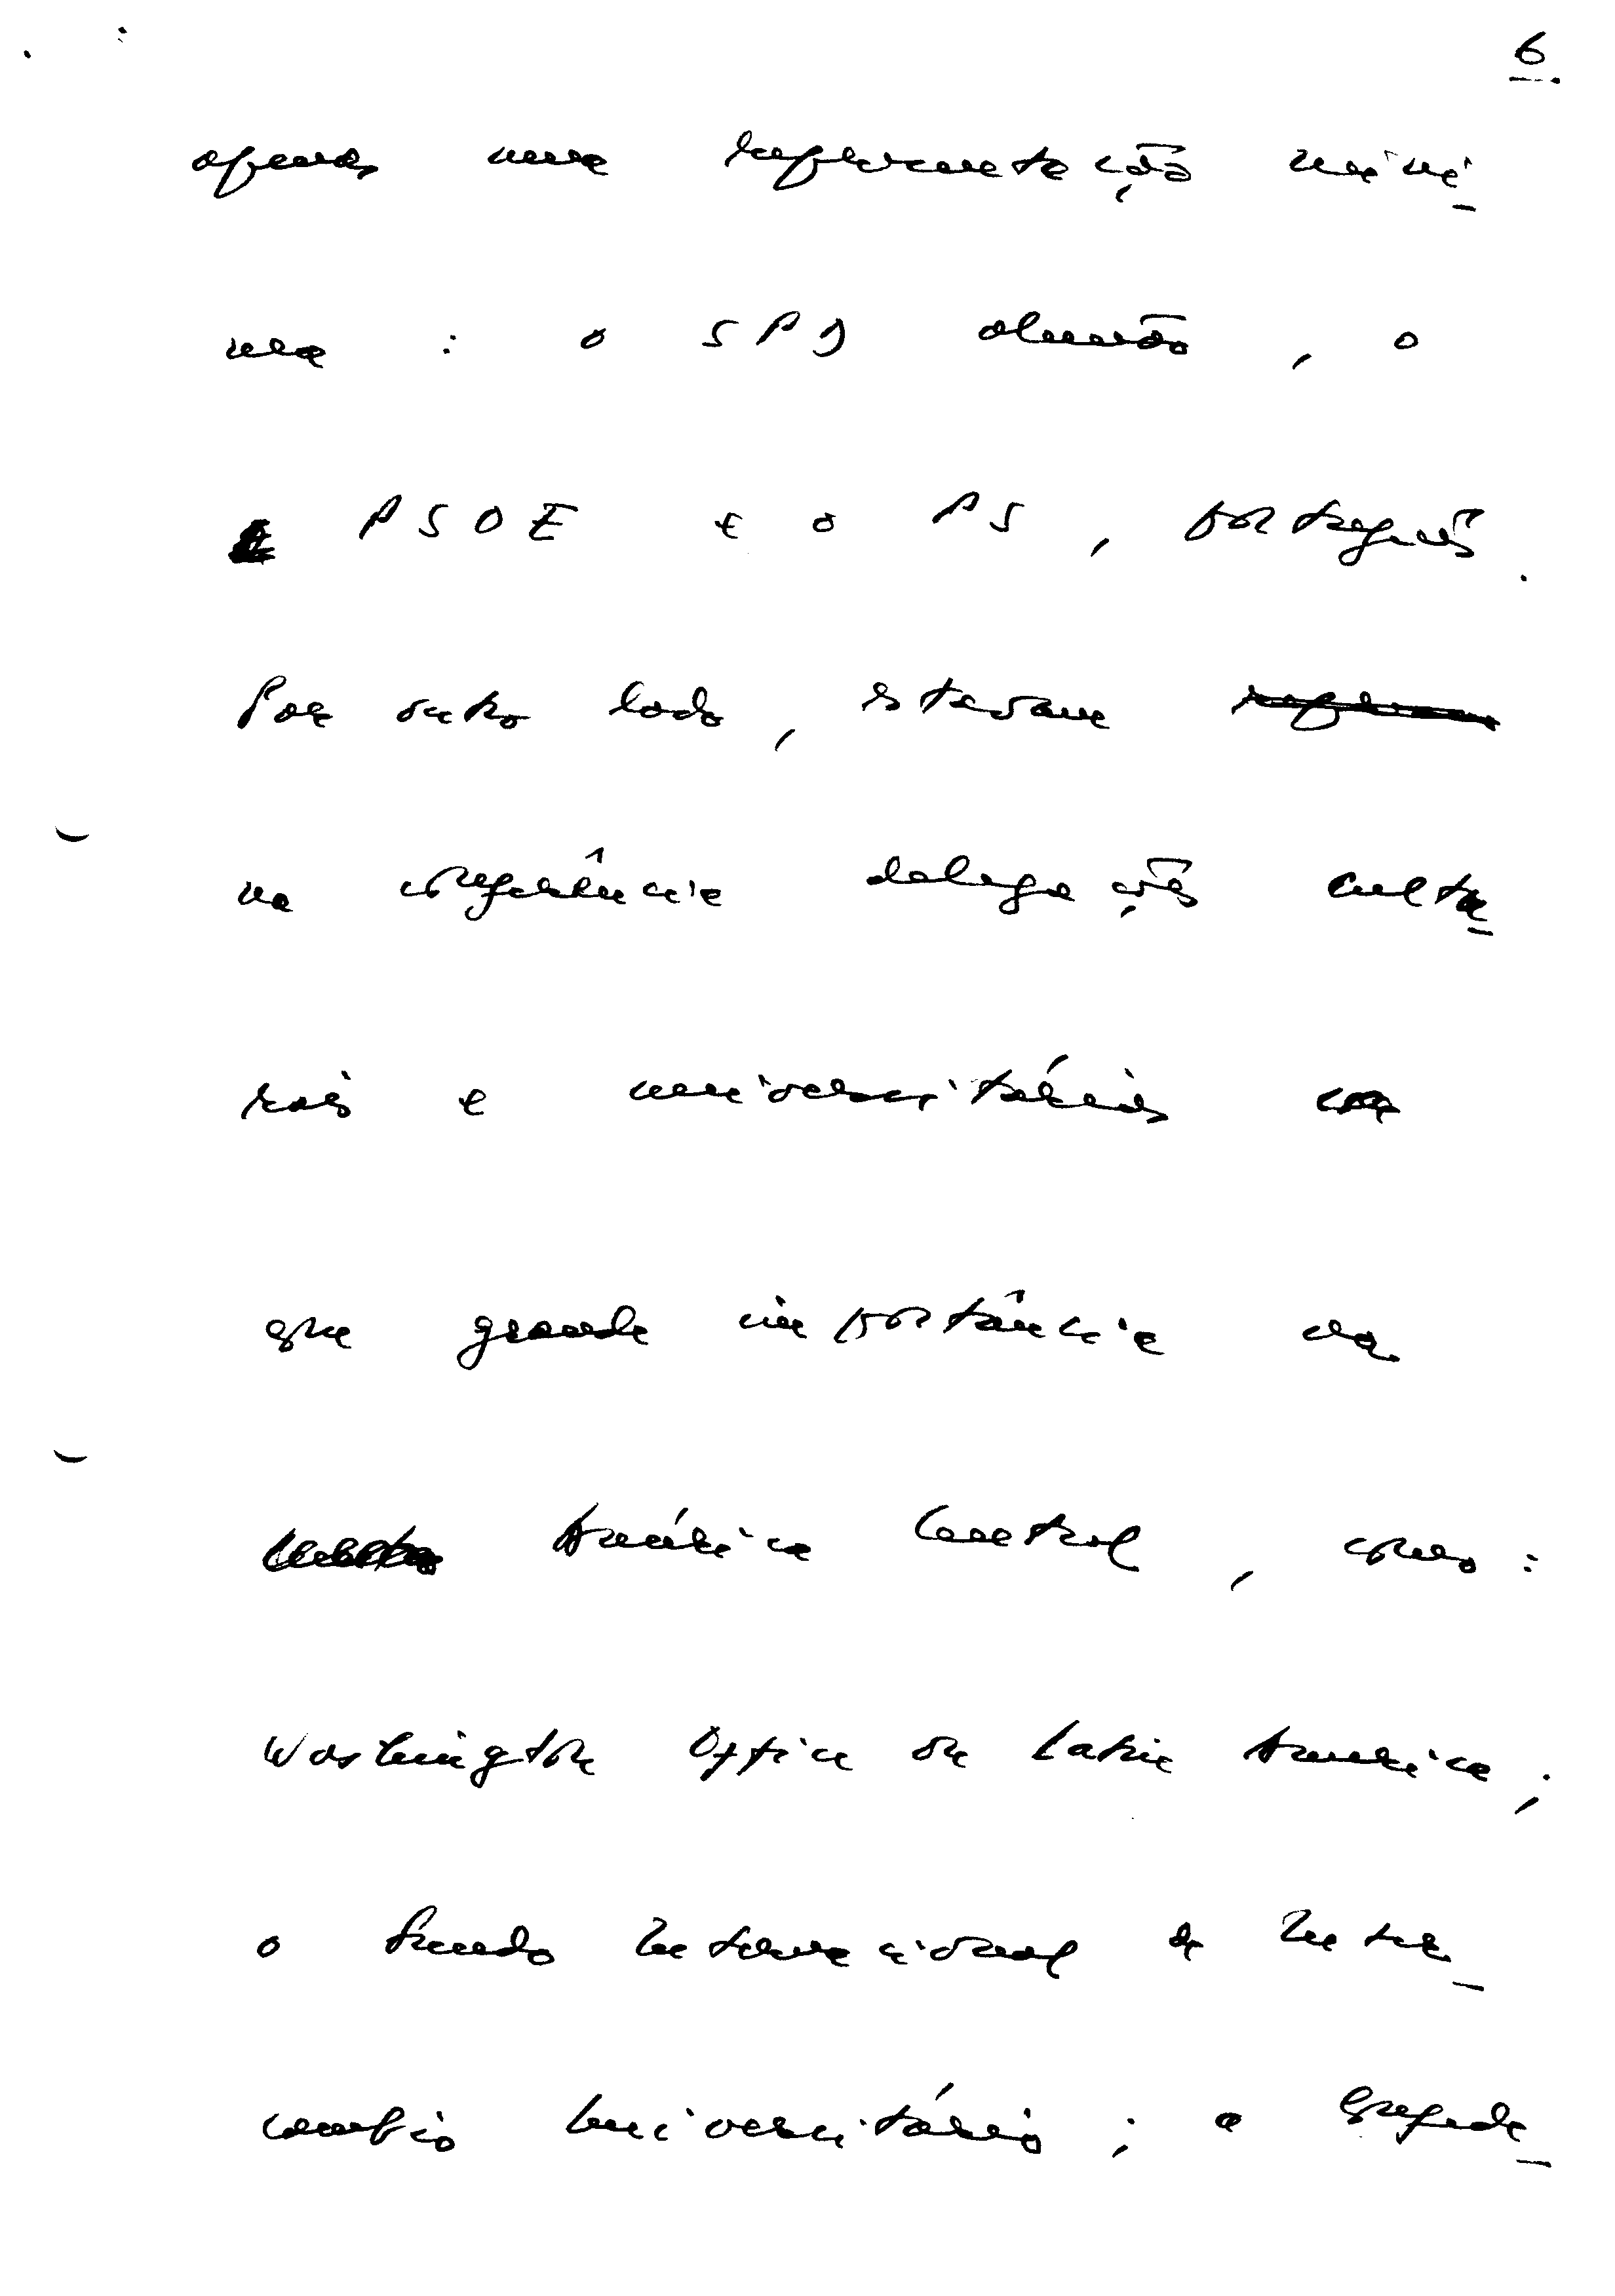 6
apenas uma representação míni-
ma : o SPD alemão, o
PSOE e o PS, português.
Por outro lado, estavam
na conferência delegações cultu-
rais e universitárias
que grande importância na
América Central, como:
Washington Office on Latin America;
o Fundo Internacional de Inter-
cambio Universitário; a